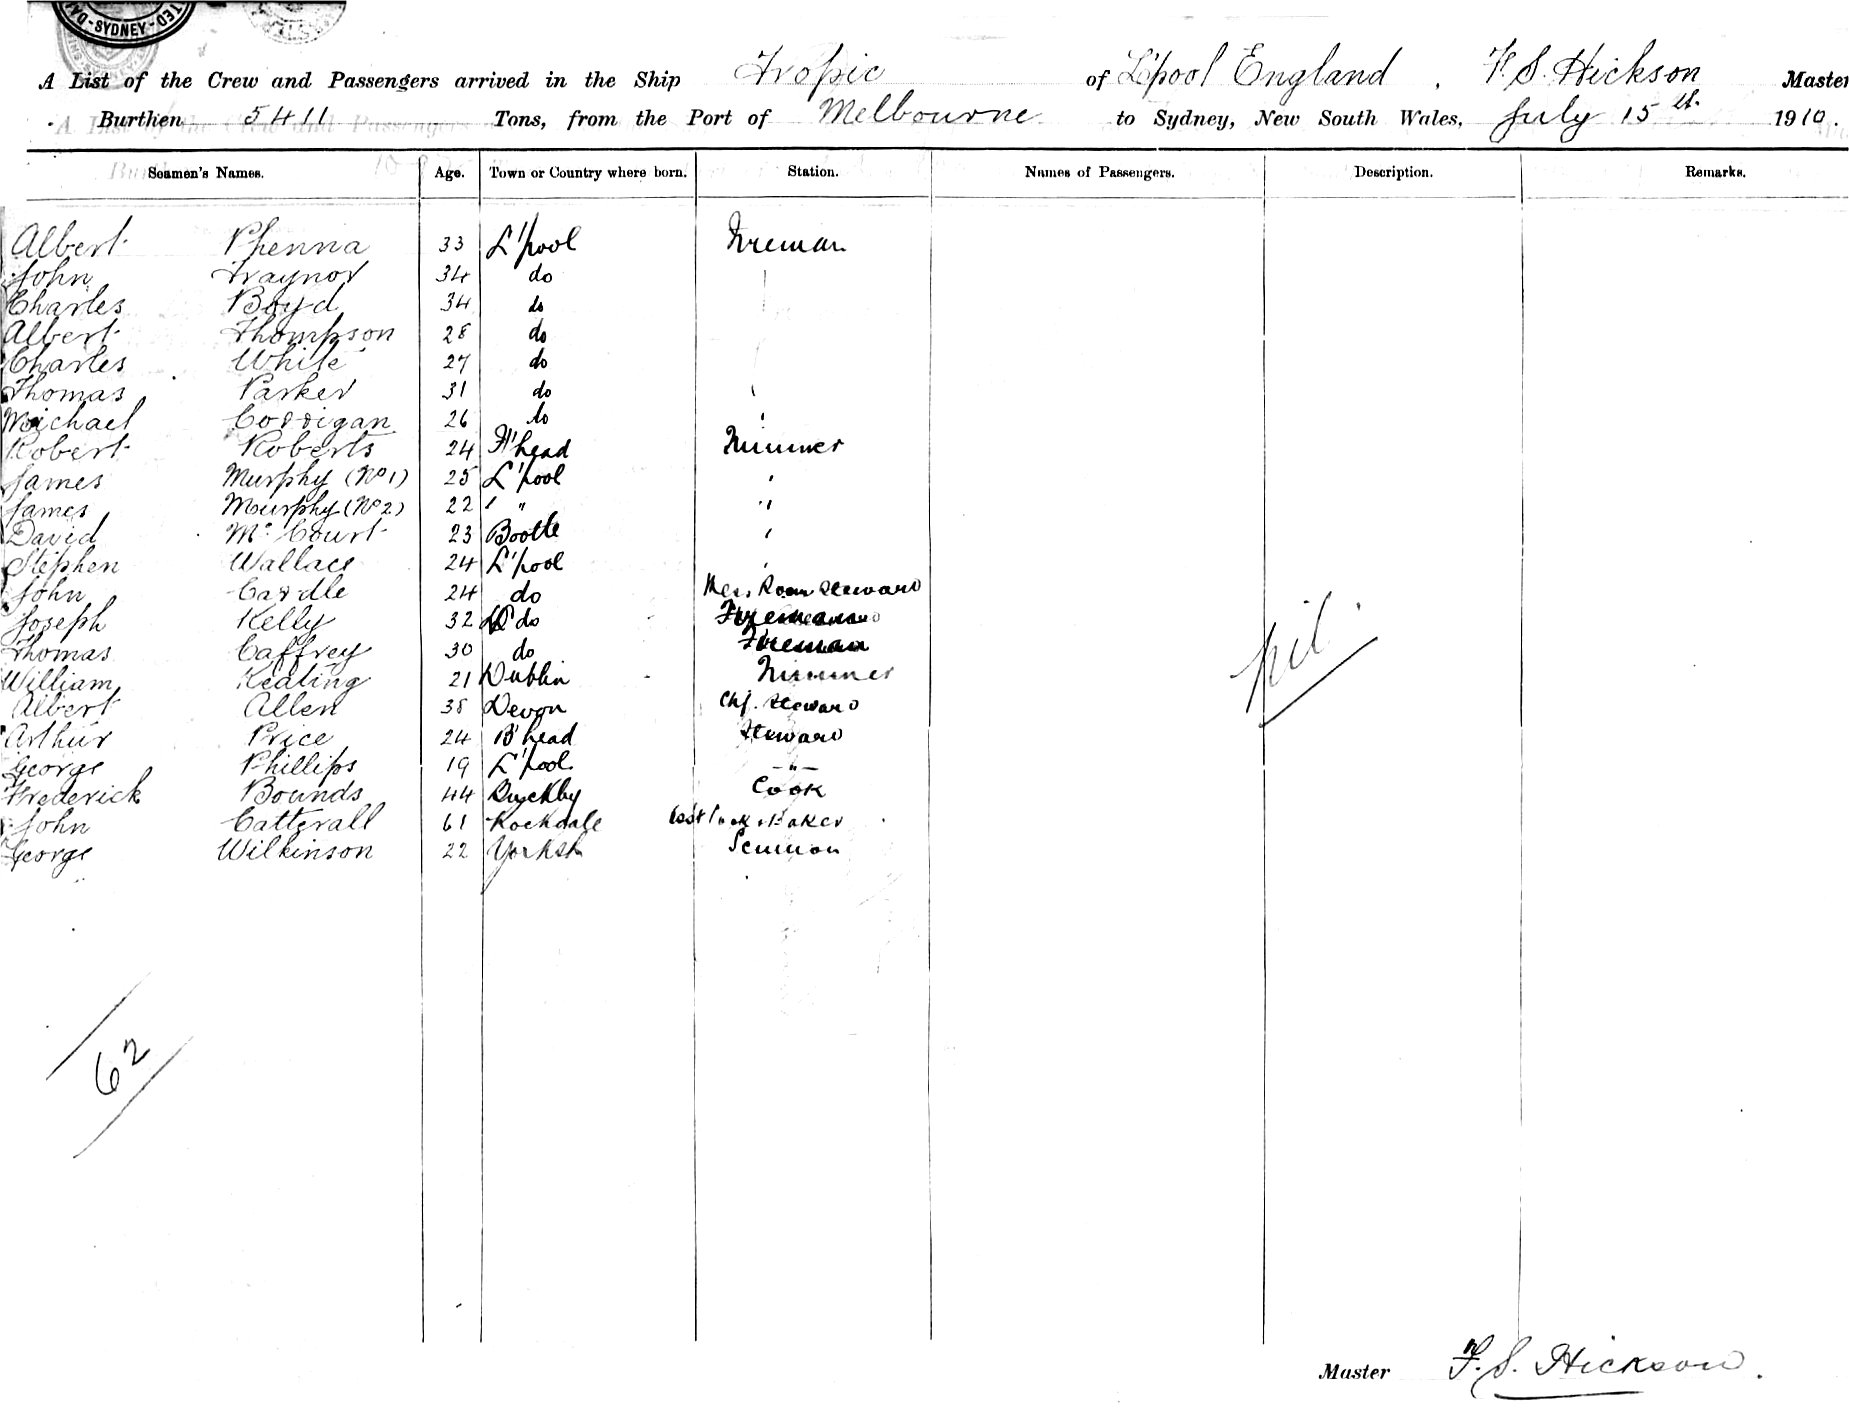 SYDNEY
A List of the Crew and Passengers arrived in the Ship Tropic of L'pool England, F. S. Hickson Master
Burthen 5411 Tons, from the Port of Melbourne to Sydney, New South Wales, July 15th 1910.
Seamen's Names. Age. Town or Country where born. Station. Names of Passengers. Description. Remarks.
Albert Phenna 33 L'pool Fireman
John Traynor 34 do
Charles Boyd 34 do
Albert Thompson 28 do
Charles White 27 do
Thomas Parker 31 do
Michael Corrigan 26 do
Robert Roberts 24 head Trimmer
James Murphy (No 1) 25 L'pool "
James Murphy (No 2) 22 " "
David McCourt 23 Bootle "
Stephen Wallace 24 L'pool "
John Cardle 24 do Mess Room Steward
Joseph Kelly 32 do Fireman
Thomas Caffrey 30 do Fireman
William Keating 21 Dublin Trimmer
Albert Allen 38 Devon Chf. Steward
Arthur Price 24 B'head Steward
George Phillips 19 L'pool "
Frederick Bounds 44 Cook
John Catterall 61 Rochdale Cook & Baker
George Wilkinson 22 Yorksh
nil.
62
Master F. S. Hickson.